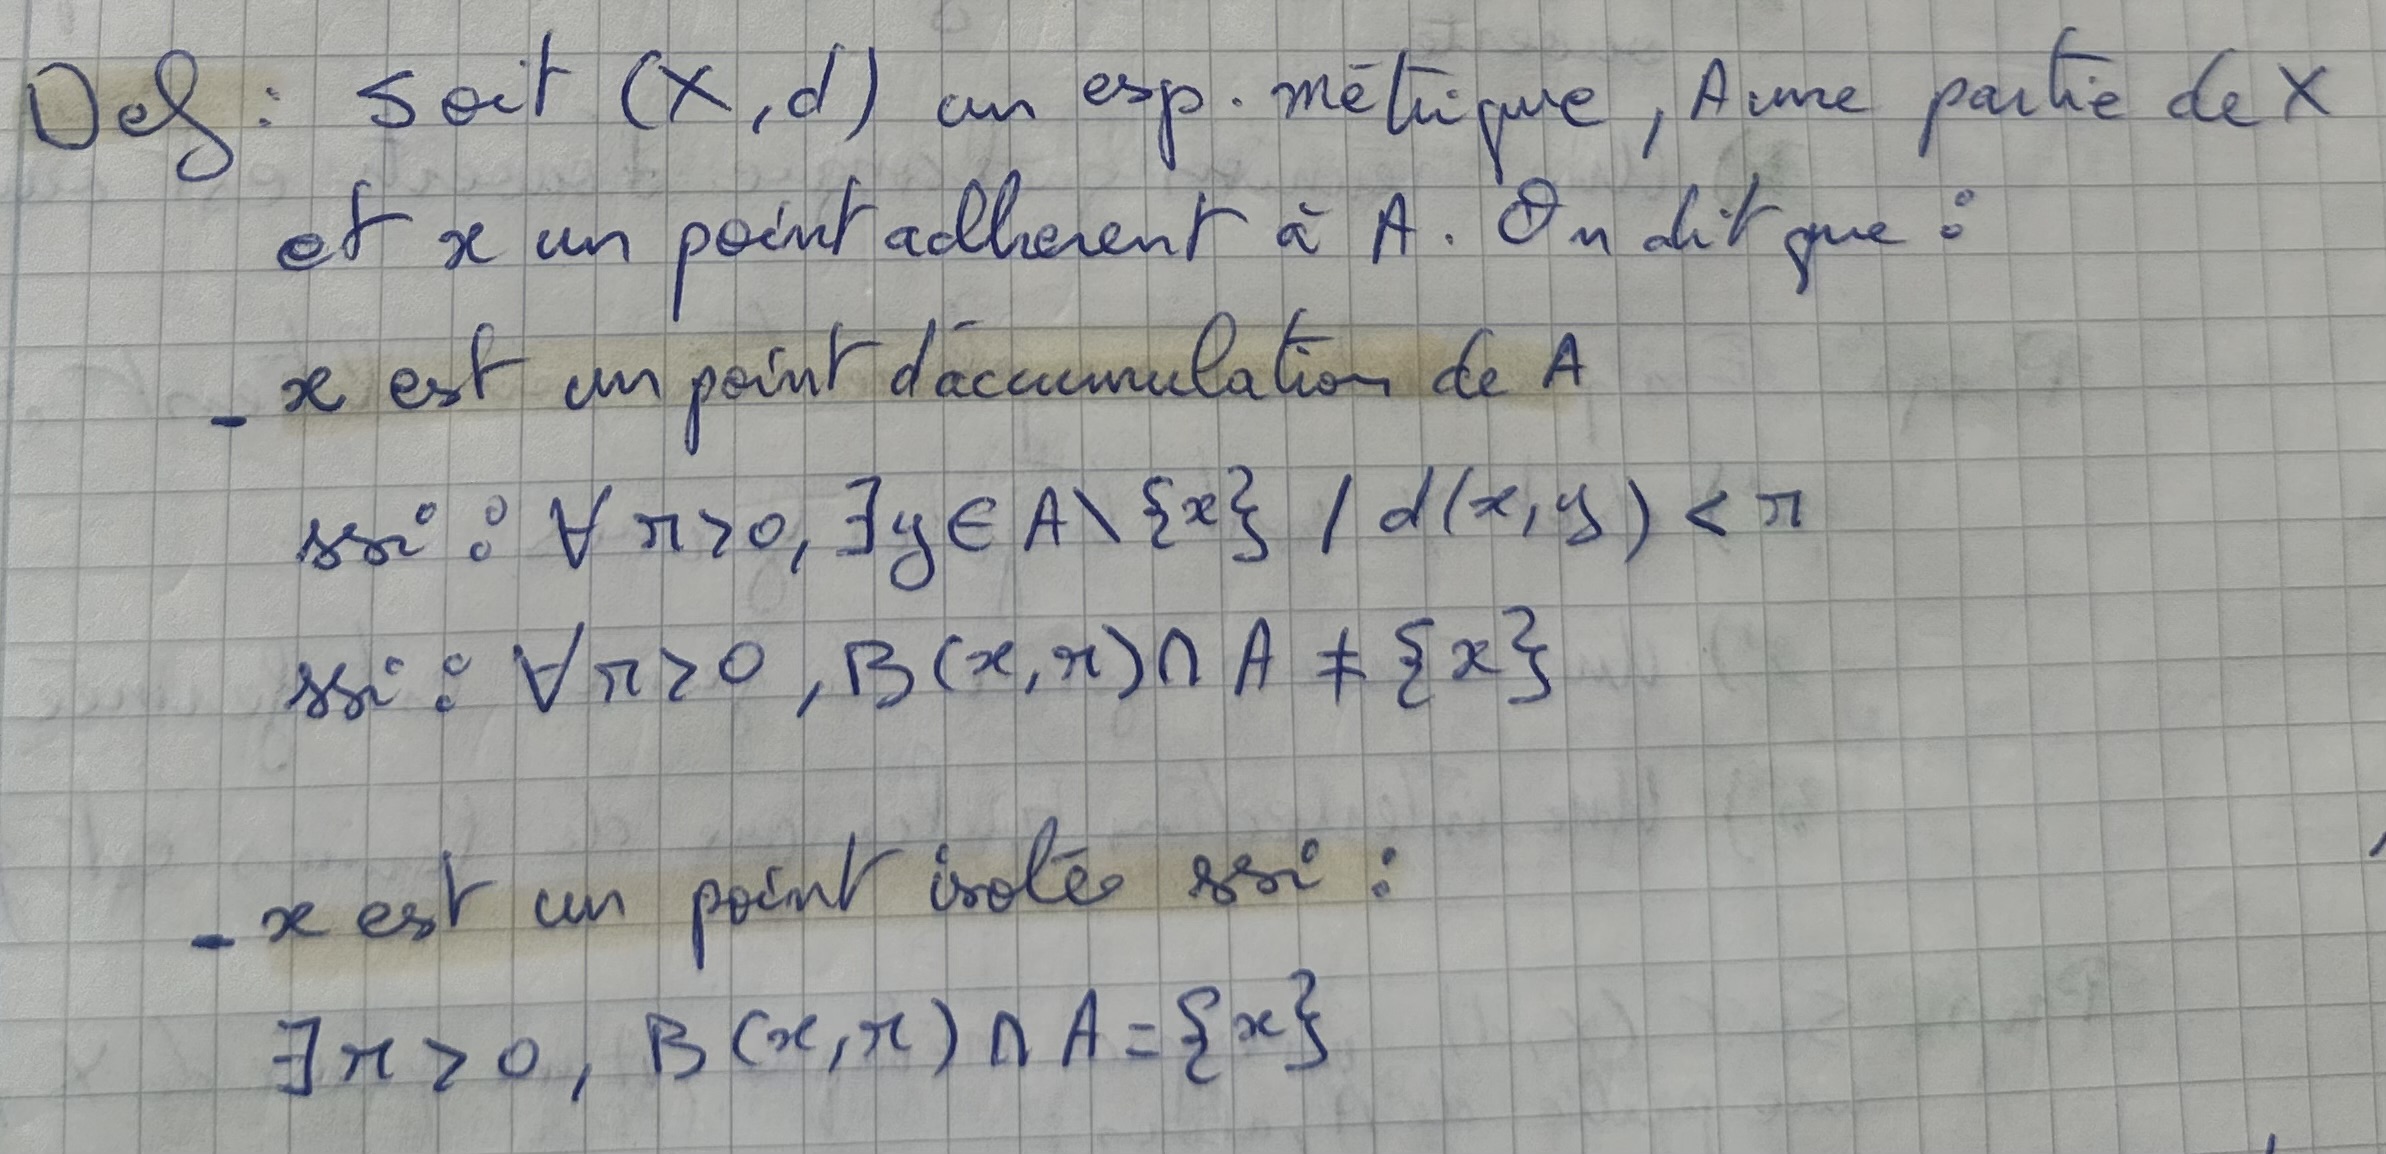 Def : Soit (X, d) un esp. métrique, A une partie de X
et x un point adherent à A. On dit que :
- x est un point d'accumulation de A
ssi : ∀ r > 0, ∃ y ∈ A \ {x} / d(x, y) < r
ssi : ∀ r > 0, B(x, r) ∩ A ≠ {x}
- x est un point isolé ssi :
∃ r > 0, B(x, r) ∩ A = {x}